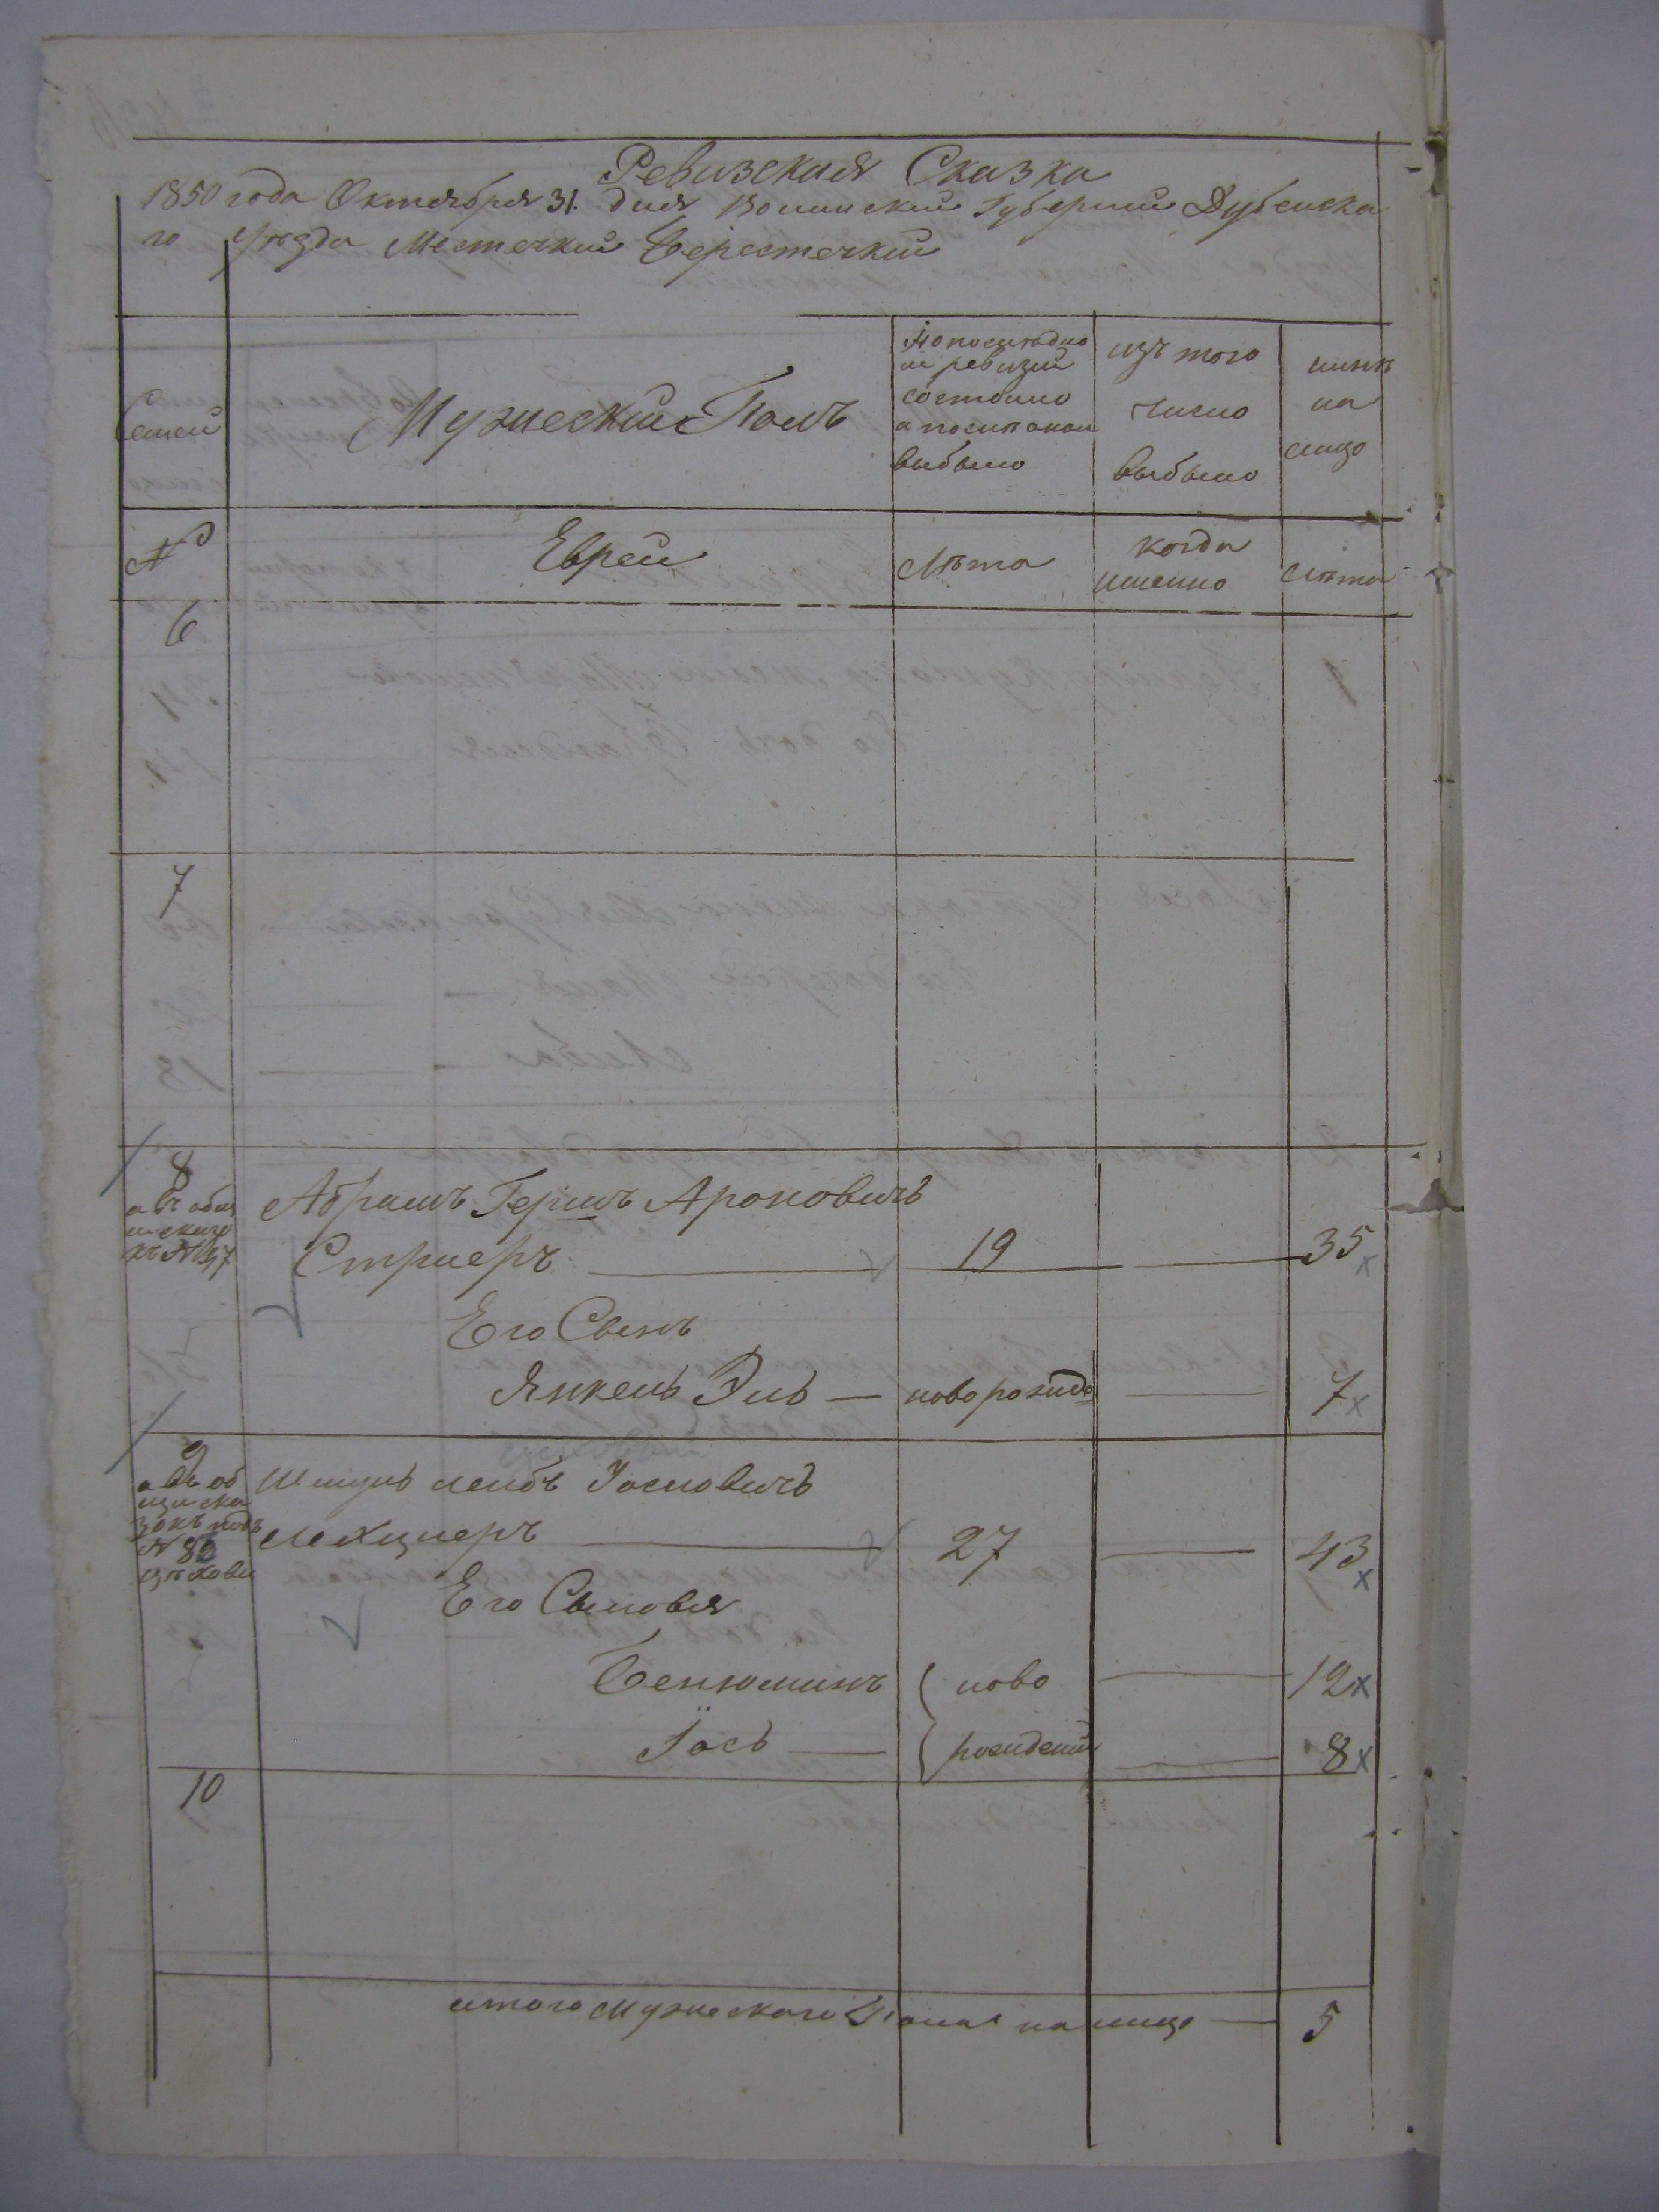 Ревизская Сказка
1850 года Октября 31. дня Волынский Губернии Дубенска
го уѣзда Местечкий Берестечкий
Семей
Мужеский Полъ
По последне
й ревизии
состояло
и после оной
выбыло
изъ того
число
выбыло
нынѣ
на
лицо
№
Евреи
Лѣта
когда
имянно
Лѣта
6
7
8
а въ общ
Абрамъ Гершъ Ароновичъ
Стриеръ 19 35 x
Его Сынъ
Янкель Эль — новорожде 7 x
9
Шмуль лейбъ Іосиовичъ
Мехциеръ 27 43 x
Его Сыновья
Бенюминъ ново 12 x
Іось рождений 8 x
10
итого Мужескаго Пола на лицо — 5